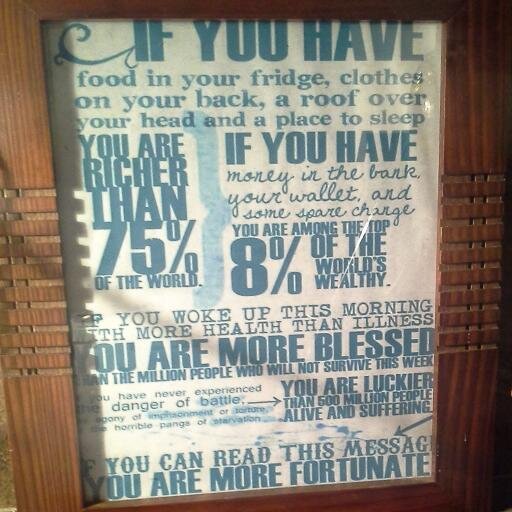 IF YOU HAVE
food in your fridge, clothes
on your back, a roof over
your head and a place to sleep
YOU ARE
RICHER
THAN
75%
OF THE WORLD.
IF YOU HAVE
money in the bank,
your wallet, and
some spare change
YOU ARE AMONG THE TOP
8% OF THE
WORLD'S
WEALTHY.
F YOU WOKE UP THIS MORNING
TH MORE HEALTH THAN ILLNESS
YOU ARE MORE BLESSED
HAN THE MILLION PEOPLE WHO WILL NOT SURVIVE THIS WEEK
you have never experienced
the danger of battle,
agony of imprisonment or torture,
the horrible pangs of starvation
YOU ARE LUCKIER
THAN 500 MILLION PEOPLE
ALIVE AND SUFFERING.
F YOU CAN READ THIS MESSAG
YOU ARE MORE FORTUNATE